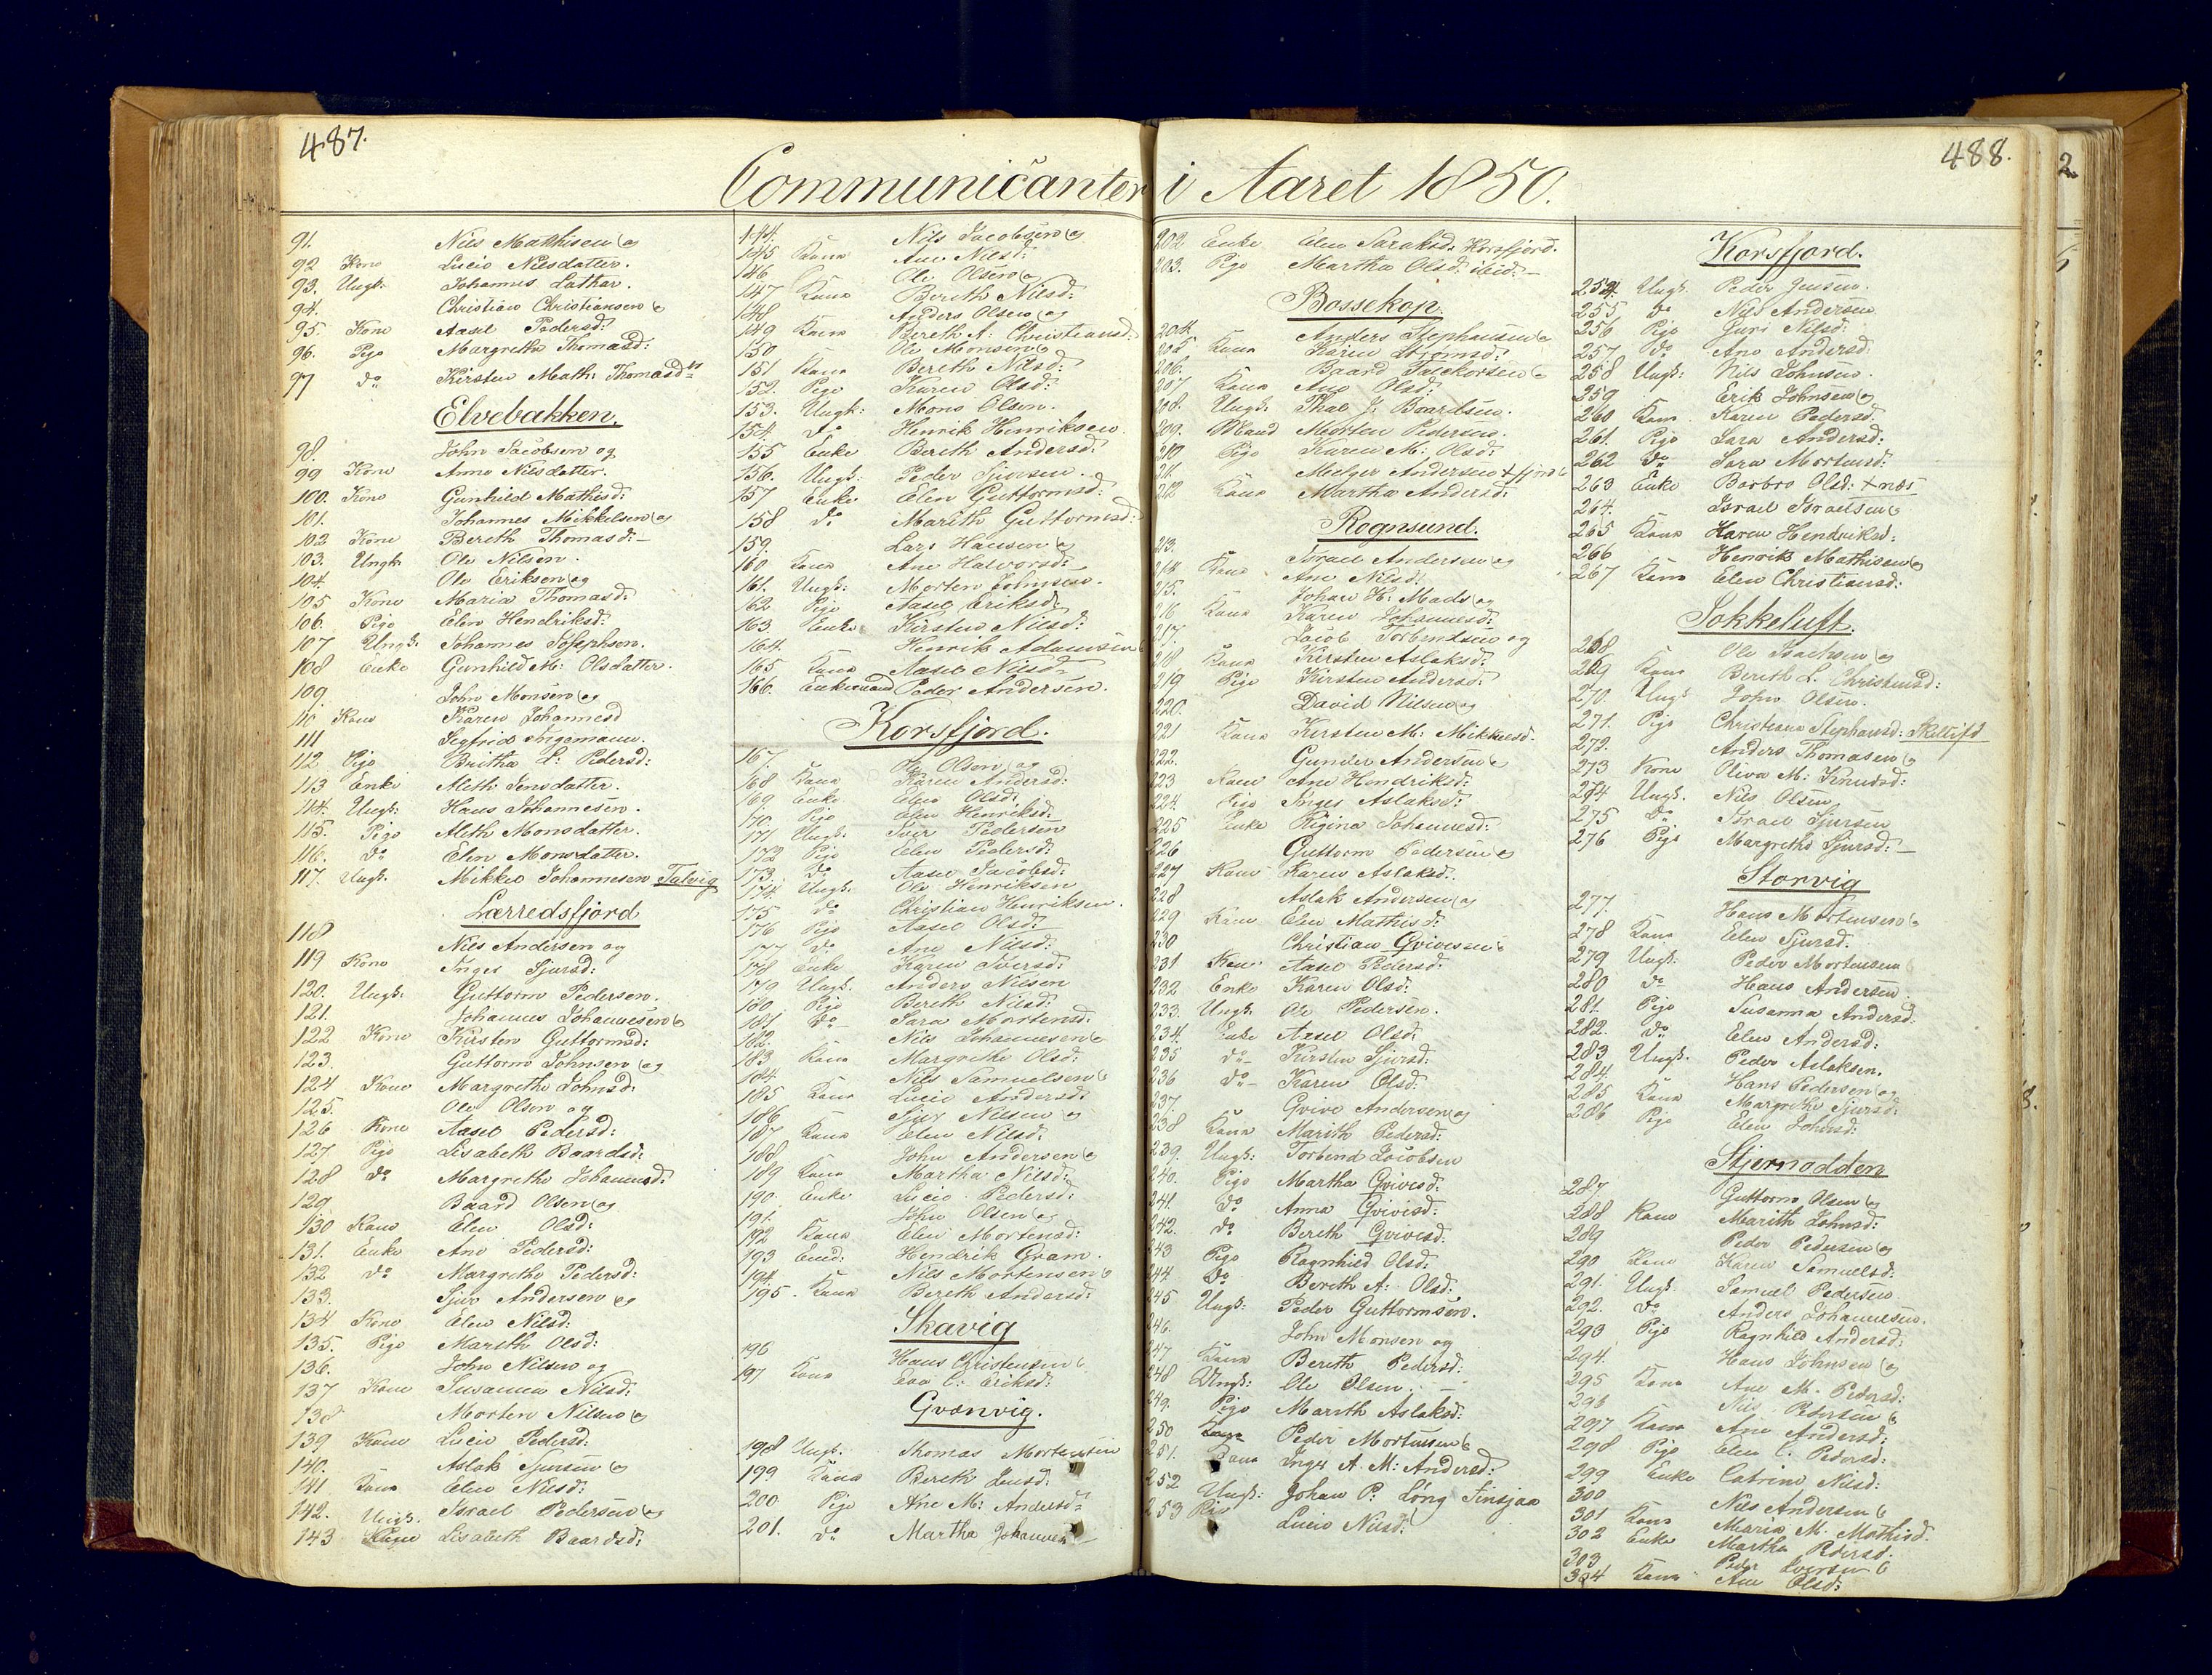 487.
Communicanter i Aaret 1850.
488.
2
91. Nils Mathisen og
92 Kone Lucie Nilsdatter.
93. Ungk: Johannes Lathar.
94. Christian Christiansen og
95. Kone Aasel Pedersd:
96. Pige Margrethe Thomasd:
97 do Kirsten Math: Thomasdtr
Elvebakken.
98. John Jacobsen og
99 Kone Anne Nilsdatter.
100. Kone Gunhild Mathisd:
101. Johannes Mikkelsen og
102 Kone Bereth Thomasd: –
103. Ungk Ole Nilsen.
104. Ole Eriksen og
105 Kone Maria Thomasd:
106. Pige Elen Hendriksd:
107 Ungk: Johannes Josephsen.
108 Enke Gunhild M: Olsdatter.
109. John Monsen og
110 Kone Karen Johannesd
111 Segfrid Ingemann.
112 Pige Britha L: Pedersd:
113 Enke Aleth Jensdatter.
114. Ungk: Hans Johannesen.
115. Pige Aleth Monsdatter.
116. do Elen Monsdatter.
117. Ungk. Mikkel Johannesen Talvig
Lerredsfjord
118 Nils Andersen og
119 Kone Inger Sjursd:
120. Ungk: Guttorm Pedersen.
121. Johannes Johannesen og
122 Kone Kirsten Guttormsd:
123. Guttorm Johnsen og
124 Kone Margrethe Johnsd:
125. Ole Olsen og
126 Kone Aasel Pedersd:
127 Pige Lisabeth Baardsd:
128 do Margrethe Johannesd:
129 Baard Olsen og
130 Kone Elen Olsd:
131. Enke Ane Pedersd:
132 do Margrethe Pedersd:
133. Sjur Andersen og
134 Kone Elen Nilsd:
135. Pige Marith Olsd:
136. John Nilsen og
137 Kone Susanna Nilsd:
138 Morten Nilsen og
139 Kone Lucie Pedersd:
140. Aslak Sjursen og
141 Kone Elen Nilsd:
142. Ungk. Israel Pedersen og
143 Kone Lisabeth Baardsd:
144. Nils Jacobsen og
145 Kone Ane Nilsd:
146 Ole Olsen og
147 Kone Bereth Nilsd:
148 Anders Olsen og
149 Kone Bereth A: Christiansd:
150 Ole Monsen og
151 Kone Bereth Nilsd:
152. Pige Karen Olsd:
153. Ungk: Mons Olsen.
154. do Henrik Henriksen.
155 Enke Bereth Andersd:
156. Ungk: Peder Sjursen.
157 Enke Elen Guttormsd:
158 do Marith Guttormsd:
159. Lars Hansen og
160 Kone Ane Halvorsd:
161. Ungk: Morten Johnsen.
162 Pige Aasel Eriksd:
163. Enke Kirsten Nilsd:
164. Henrik Adamsen
165 Kone Aasel Nilsd
166. Enkemand Peder Andersen.
Korsfjord.
167. Ole Olsen og
168 Kone Karen Andersd:
169. Enke Elen Olsd:
170. Pige Elen Henriksd:
171. Ungk: Iver Pedersen
172 Pige Elen Pedersd:
173. do Aasel Jacobsd:
174. Ungk: Ole Henriksen
175 do Christian Henriksen.
176 Pige Aasel Olsd:
177 do Ane Nilsd:
178 Enke Karen Iversd:
179 Ungk. Anders Nilsen
180 Pige Bereth Nilsd:
181 do – Sara Mortensd.
182. Nils Johannesen og
183 Kone Margrethe Olsd:
184. Nils Samuelsen og
185 Kone Lucie Andersd:
186 Sjur Nilsen og
187 Kone Elen Nilsd:
188. John Andersen og
189 Kone Martha Nilsd:
190. Enke Lucie Pedersd:
191. John Olsen og
192 Kone Elen Mortensd:
193 Hendrik Gram.
194. Nils Mortensen og
195. Kone Bereth Andersd:
Skavig
196 Hans Christensen
197 Kone Eva C: Eriksd:
Gvænvig.
198 Ungk. Thomas Mortensen
199 Kone Bereth Jensd:
200 Pige Ane M: Andersd:
201. do Martha Johannes
202 Enke Elen Saraksd: Korsfjord.
203. Pige Martha Olsd: ibid: –
Bossekop.
204. Anders Stephansen og
205 Kone Karen
206. Baard
207 Kone Ane Olsd:
208. Ungk. Thal J. Baardsen.
209. Mand Morten Pedersen.
210 Pige Karen M: Olsd:
211. Melger Andersen + fjord
212 Kone Martha Andersd:
Rognsund.
213. Israel Andersen og
214 Kone Ane Nilsd:
215. Johan H: Mads og
216 Kone Karen Johannesd:
217. Jacob Torbendsen og
218 Kone Kirsten Aslaksd:
219 Pige Kirsten Andersd:
220. David Nilsen og
221 Kone Kirsten M: Mikkelsd.
222. Gunder Andersen og
223 Kone Ane Hendriksd:
224. Pige Inger Aslaksd:
225 Enke Rigina Johannesd:
226 Guttorm Pedersen og
227 Kone Karen Aslaksd:
228 Aslak Andersen og
229 Kone Elen Mathisd:
230 Christian Gvivesen
231 Kone Aasel Pedersd:
232 Enke Karen Olsd:
233. Ungk. Ole Pedersen.
234. Enke Aasel Olsd:
235 do – Kirsten Sjursd:
236 do – Karen Olsd:
237. Gvive Andersen og
238 Kone Marith Pedersd:
239. Ungk: Torbend Jacobsen
240. Pige Martha Gvivesd:
241. do Anna Gvivisd:
242. do Bereth Gvivesd:
243 Pige Ragnhild Olsd:
244 Do Bereth A: Olsd:
245 Ungk: Peder Guttormsen.
246. John Monsen og
247 Kone Bereth Pedersd:
248 Ungk: Ole Olsen. –
249. Pige Marith Aslaksd:
250 Peder Mortensen
251. Kone Inger A. M: Andersd:
252 Ungk: Johan P: Lóng Finsjaa
253 Pige Lucie Nilsd:
Korsfjord.
254. Ungk. Peder Jensen.
255 Do Nils Andersen
256 Pige Guri Nilsd:
257. do Ane Andersd:
258 Ungk: Nils Johnsen.
259 Erik Johnsen og
260 Kone Karen Pedersd.
261. Pige Sara Andersd:
262 Do Sara Mortensd:
263 Enke Barbro Olsd: + næs
264. Israel Israelsen
265 Kone Karen Hendriksd:
266 Henrik Mathisen og
267 Kone Elen Christiansd:
Jokkeluft.
268 Ole Isachsen og
269 Kone Bereth L. Christensd:
270. Ungk John Olsen.
271. Pige Christiane Stephansd: Skillifd
272. Anders Thomasen og
273 Kone Oliva M: Knudsd:
274 Ungk. Nils Olsen
275 Do Israel Sjursen
276 Pige Margrethe Sjursd: –
Storvig
277. Hans Mortensen og
278 Kone Elen Sjursd:
279 Ungk. Peder Mortensen
280 do Hans Andersen.
281. Pige Susanna Andersd.
282. do Elen Andersd:
283 Ungk. Peder Aslaksen.
284. Hans Pedersen og
285 Kone Margrethe Sjursd:
286 Pige Elen Johnsd:
Stjernodden
287 Guttorm Olsen og
288 Kone Marith Johnsd:
289 Peder Pedersen og
290 Kone Karen Samuelsd:
291. Ungk. Samuel Pedersen
292. Do Anders Johannesen.
293 Pige Ragnhild Andersd:
294. Hans Johnsen og
295 Kone Ane M. Pedersd:
296 Nils Pedersen
297 Kone Ane Andersd:
298 Pige Elen C. Pedersd:
299 Enke Catrine Nilsd:
300 Nils Andersen
301 Kone Maria M. Mathisd.
302 Enke Martha Pedersd:
303 Peder Iversen
304 Kone Ane Olsd: